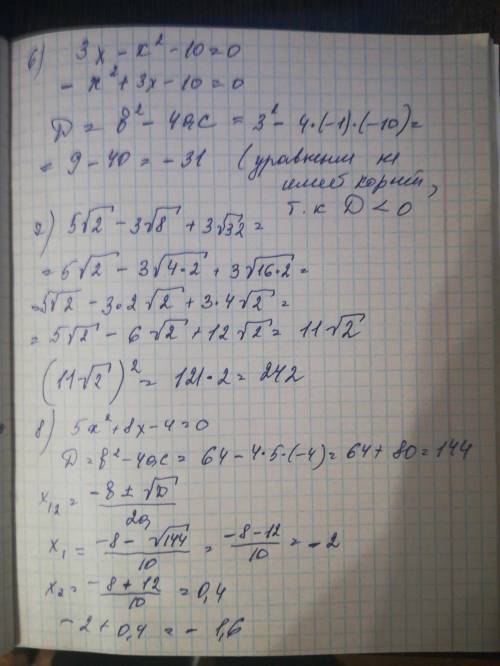 6) 3x - x² - 10 = 0
- x² + 3x - 10 = 0
D = b² - 4ac = 3² - 4·(-1)·(-10) =
= 9 - 40 = - 31 (уравнение не
имеет корней,
т.к D < 0
7) 5√2 - 3√8 + 3√32 =
= 5√2 - 3√4·2 + 3√16·2 =
= 5√2 - 3·2√2 + 3·4√2 =
= 5√2 - 6√2 + 12√2 = 11√2
(11√2)² = 121·2 = 242
8) 5x² + 8x - 4 = 0
D = b² - 4ac = 64 - 4·5·(-4) = 64 + 80 = 144
x₁₂ = (-b ± √D)/2a
x₁ = (-8 - √144)/10 = (-8-12)/10 = - 2
x₂ = (-8 + 12)/10 = 0,4
- 2 + 0,4 = - 1,6